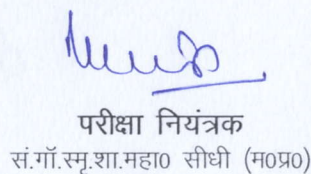 परीक्षा नियंत्रक
सं.गॉ.स्मृ.शा.महा0 सीधी (म0प्र0)